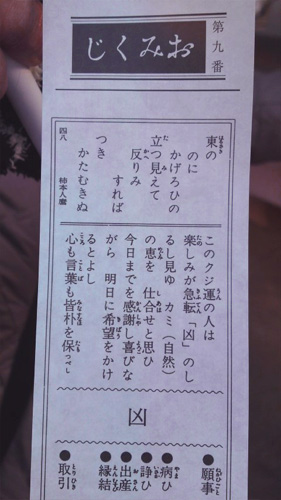 第九番
おみくじ
東の
のに
かげろひの
立つ見えて
反りみ
すれば
つき
かたむきぬ
四八 柿本人麿
このクジ運の人は
楽しみが急転「凶」のし
るし見ゆ カミ(自然)
の恵を 仕合せと思ひ
今日までを感謝し喜びな
がら 明日に希望をかけ
るとよし
心も言葉も皆朴を保
凶
●願事
●病ひ
●諍ひ
●出産
●縁結
●取引